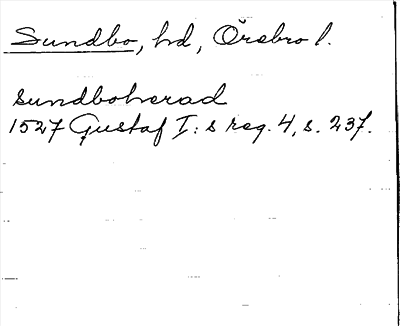 Sundbo, hd, Örebro l.
sundboherad
1527 Gustaf I:s reg. 4, s. 237.